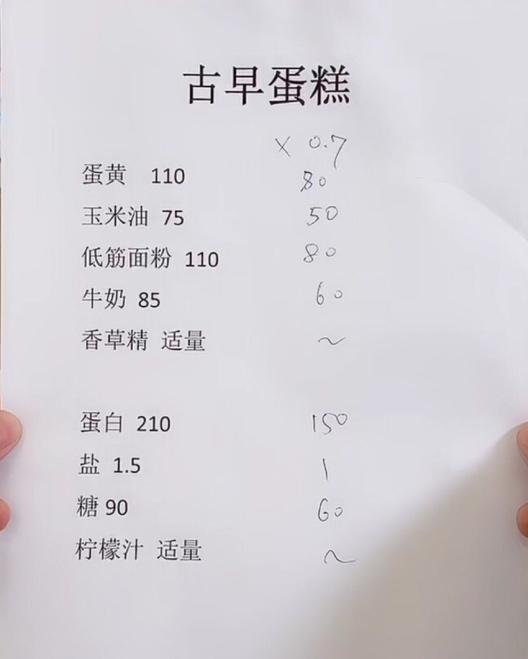 古早蛋糕
× 0.7
蛋黄 110 80
玉米油 75 50
低筋面粉 110 80
牛奶 85 60
香草精 适量 ~
蛋白 210 150
盐 1.5 1
糖 90 60
柠檬汁 适量 ~